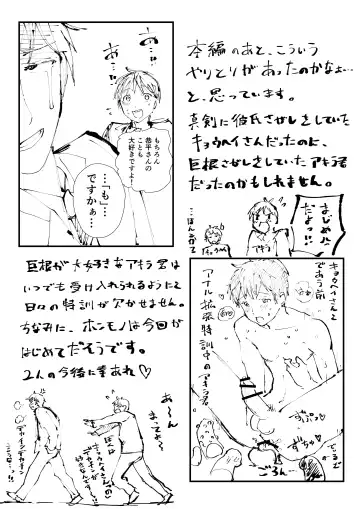 本編のあと、こういう
やりとりがあったのかなぁ…
と、思っています。
真剣に彼氏さがしをしていた
キョウヘイさんだったのに、
巨根さがしをしていたアキラ君
だったのかもしれません。
あ…
あの…
もちろん
恭平さんの
ことも
大好きですよ!
…「も」…
ですかぁ…
まじめに
だよっ!!
アキラ
巨根が大好きなアキラ君は
いつでも受け入れられるように
日々の特訓が欠かせません。
ちなみに、ホンモノは今回が
はじめてだそうです。
2人の今後に幸あれ♡
キョウヘイさんと
であう前
アナル拡張特訓中のアキラ君
ずぷっ♡
ごろん…
あ〜ん
まってよ〜
デカチン